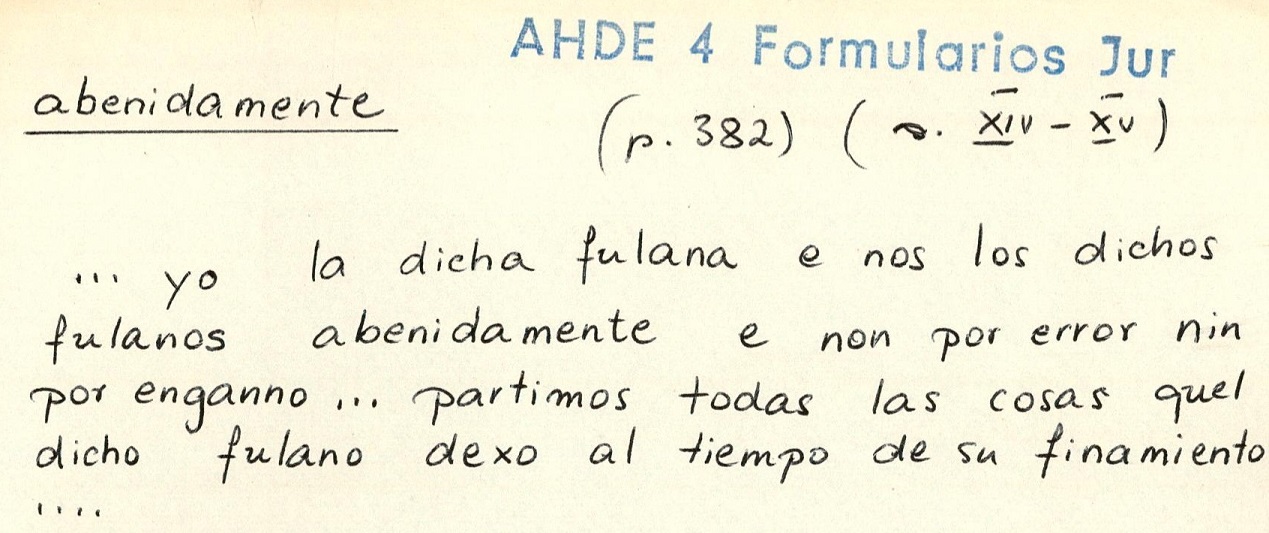 AHDE 4 Formularios Jur
abenidamente
(p. 382) (s. XIV - XV)
... yo la dicha fulana e nos los dichos
fulanos abenidamente e non por error nin
por enganno ... partimos todas las cosas quel
dicho fulano dexo al tiempo de su finamiento
....